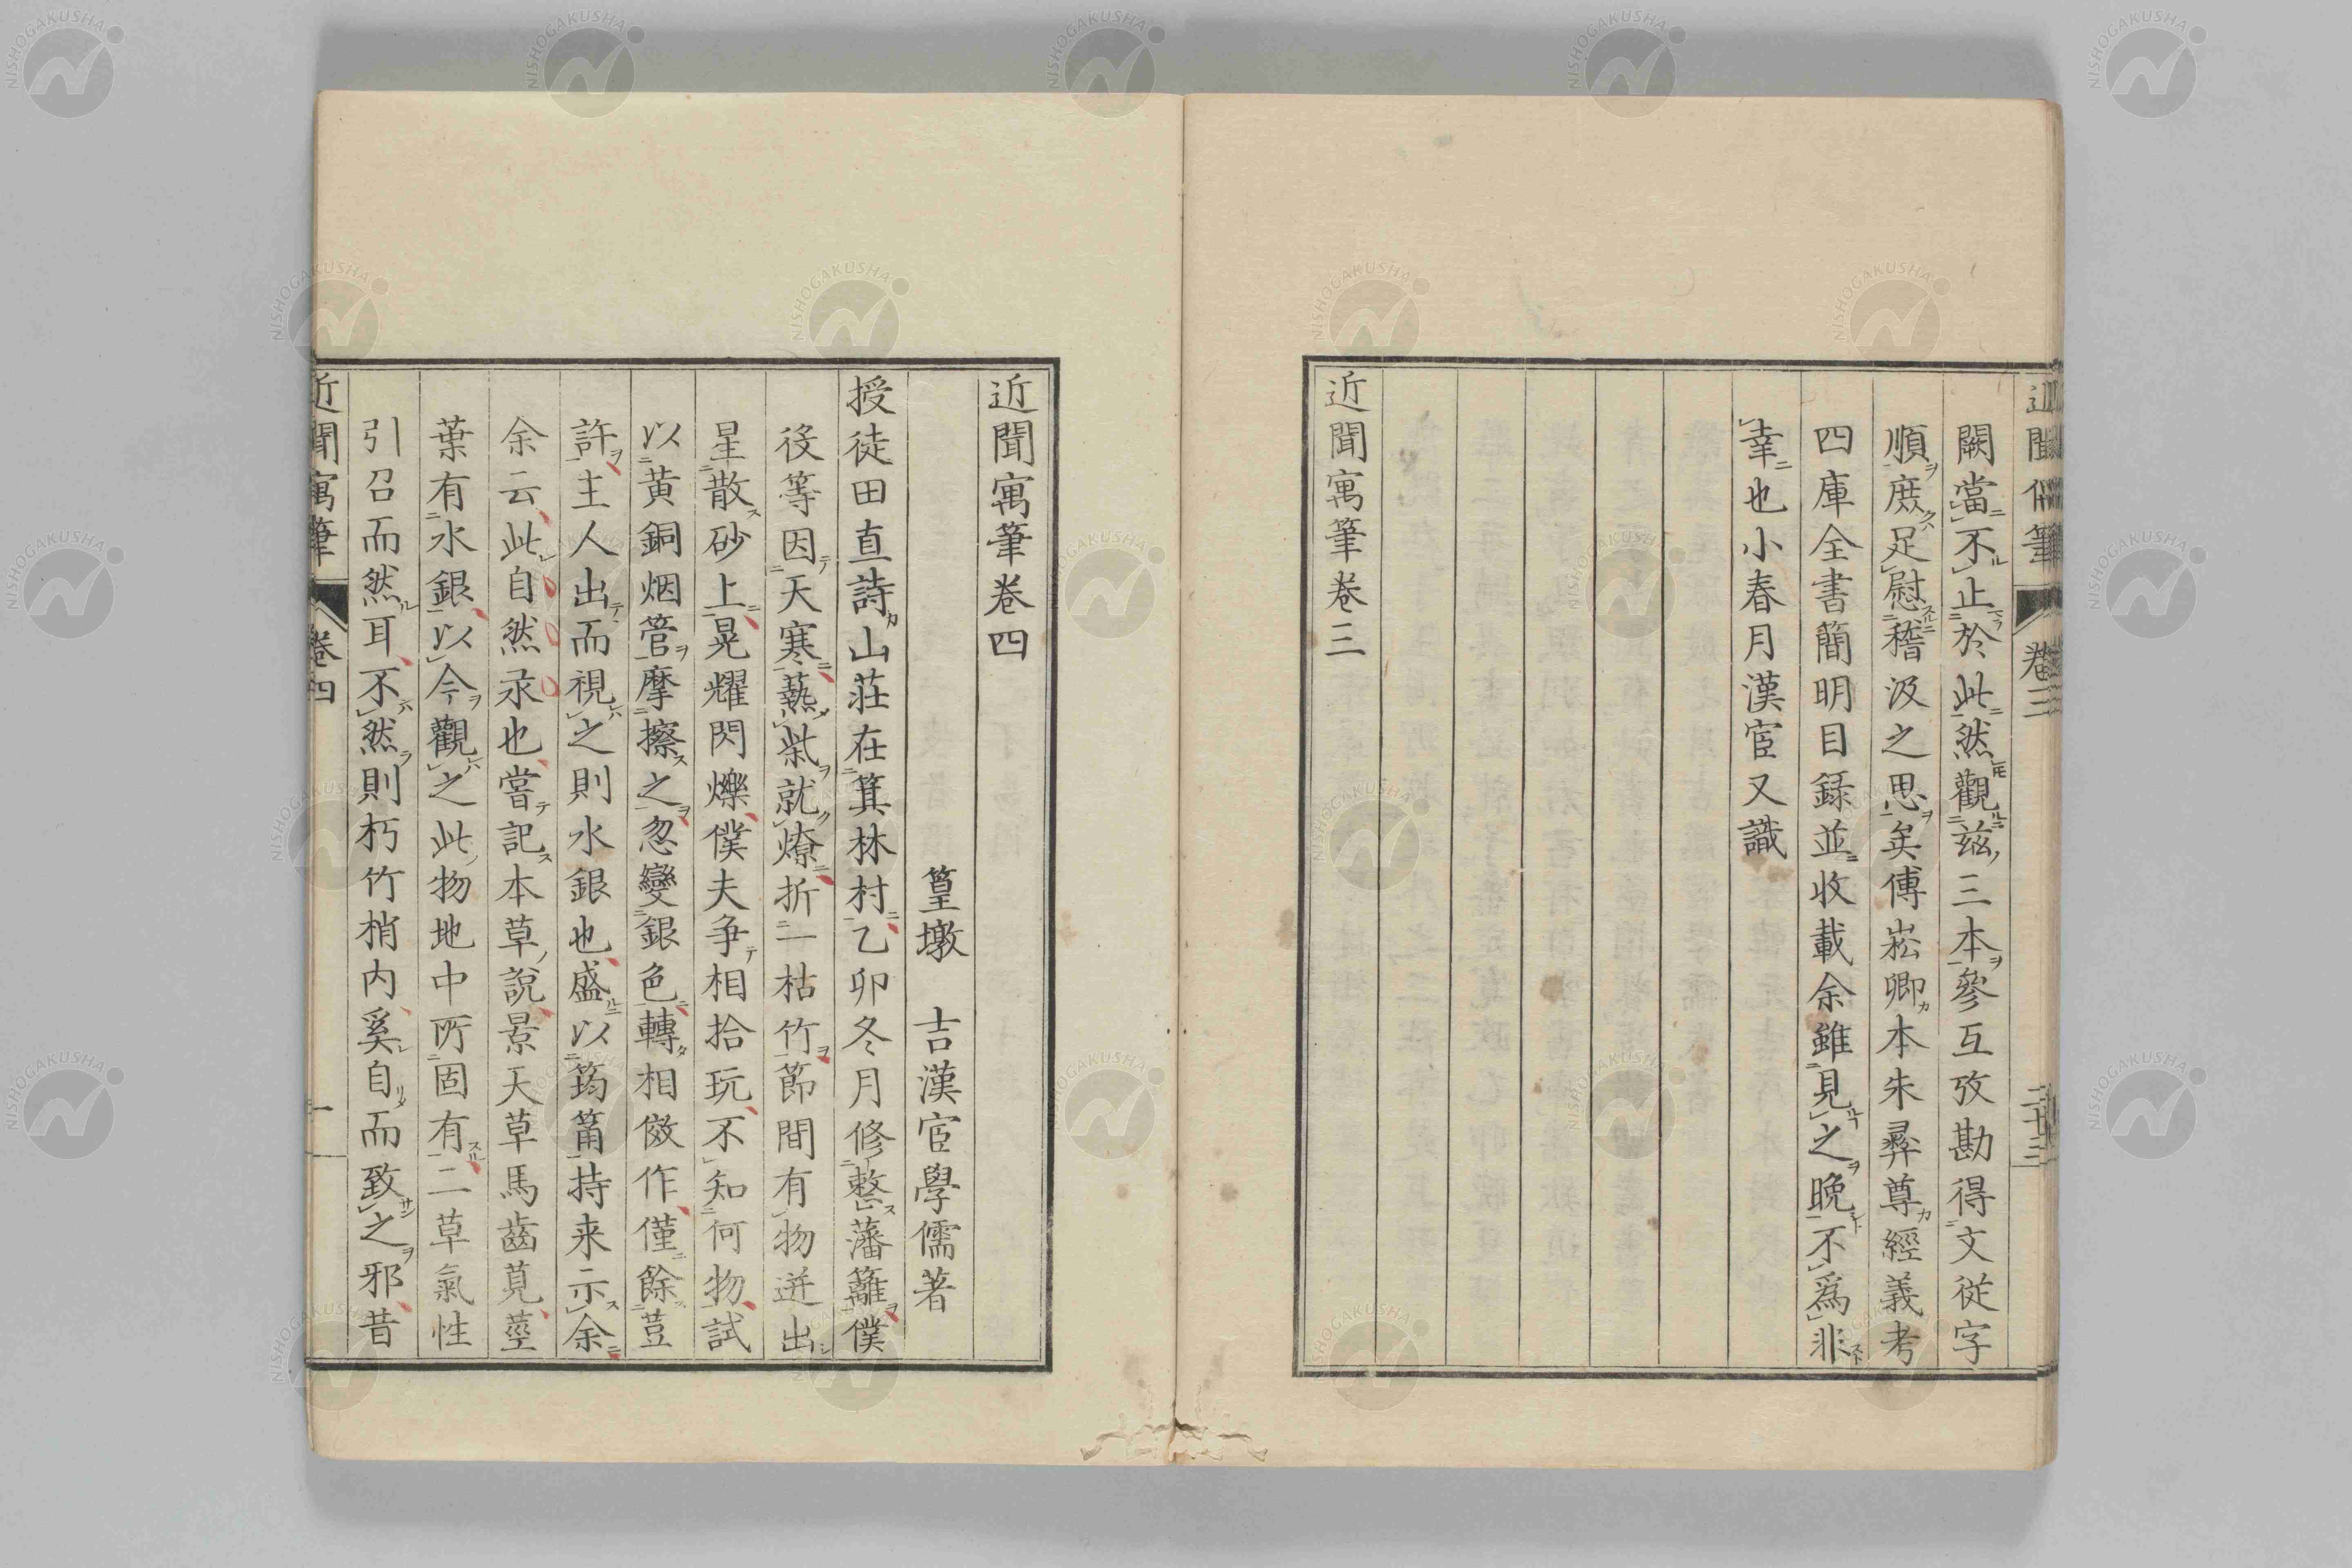 闕當不止於此然觀茲三本參互攷勘得文從字
順庶足慰稽汲之思矣傅崧卿本朱彛尊經義考
四庫全書簡明目録並收載余雖見之晩不爲非
幸也小春月漢宦又識
近聞寓筆卷三
近聞寓筆卷四
篁墩 吉漢宦學儒著
授徒田直詩山莊在箕林村乙卯冬月修整藩籬僕
役等因天寒爇柴就燎折一枯竹節間有物迸出
星散砂上晃耀閃爍僕夫争相拾玩不知何物試
以黄銅烟管摩擦之忽變銀色轉相傚作僅餘荳
許主人出而視之則水銀也盛以筠筩持来示余
余云此自然汞也嘗記本草説景天草馬齒莧莖
葉有水銀以今觀之此物地中所固有二草氣性
引召而然耳不然則朽竹梢内奚自而致之邪昔
近聞寓筆 卷四 一
NISHOGAKUSHA